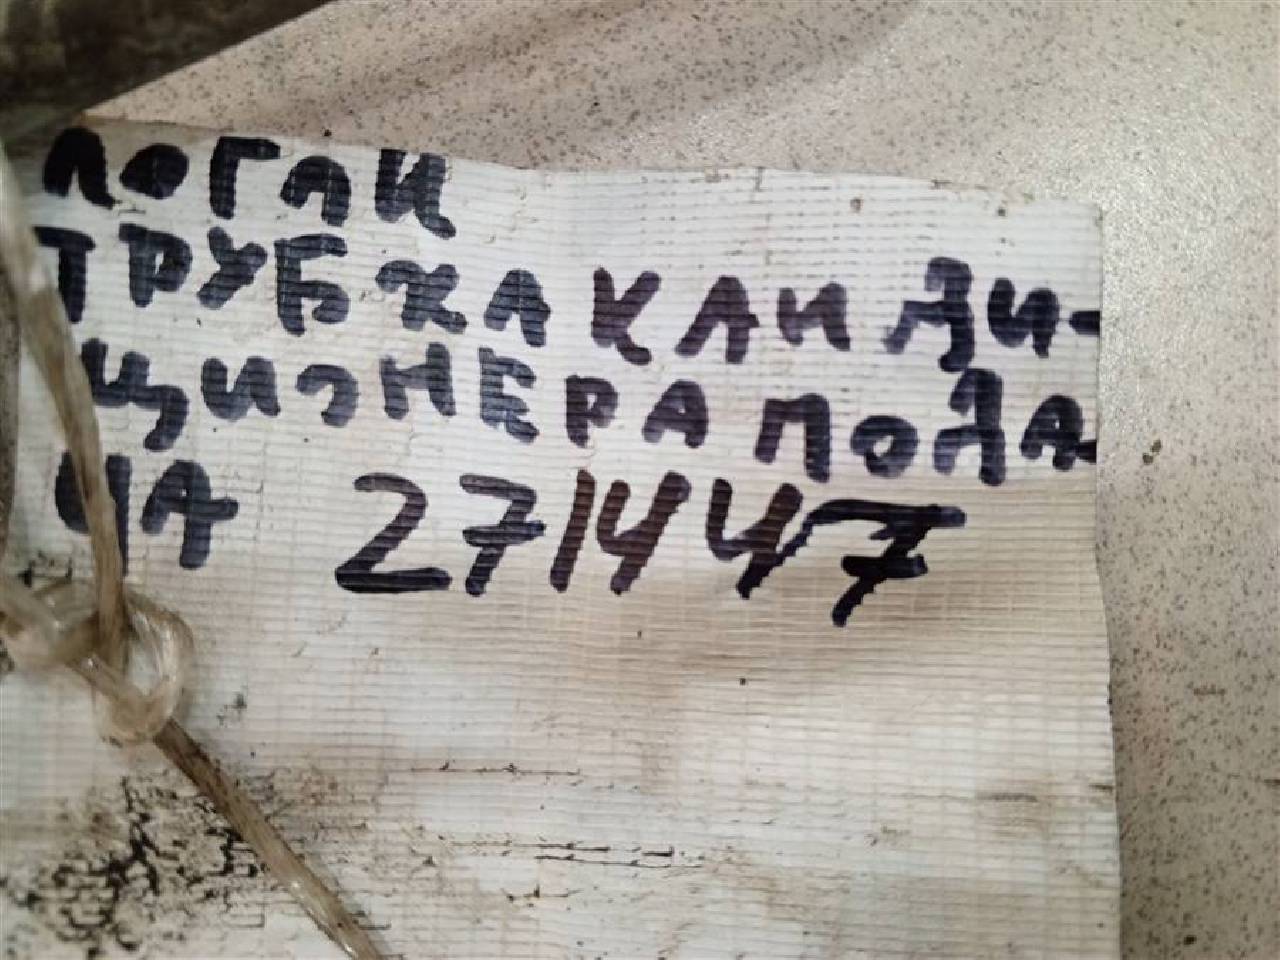 ЛОГАН
ТРУБКА КАНДИ-
ЦИОНЕРА ПОДА-
ЧА 2714447